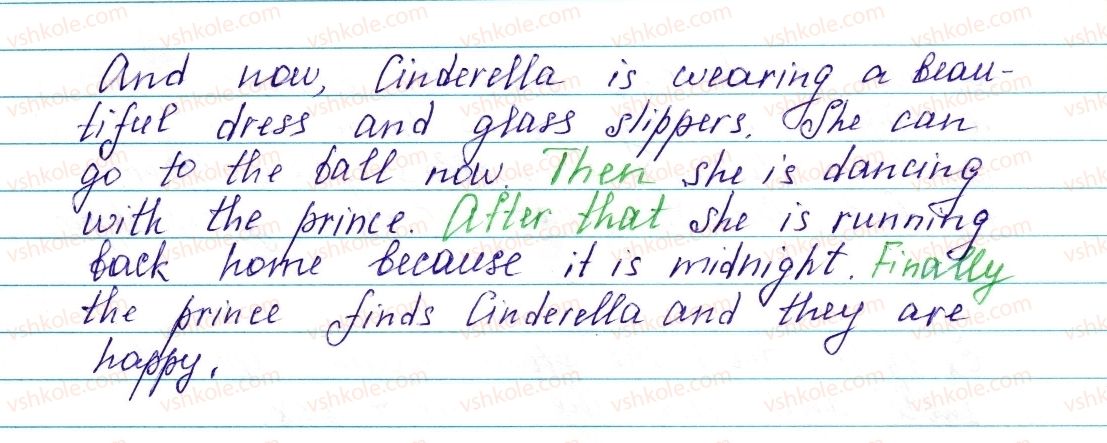 And now, Cinderella is wearing a beau-
tiful dress and glass slippers. She can
go to the ball now. Then she is dancing
with the prince. After that she is running
back home because it is midnight. Finally
the prince finds Cinderella and they are
happy.